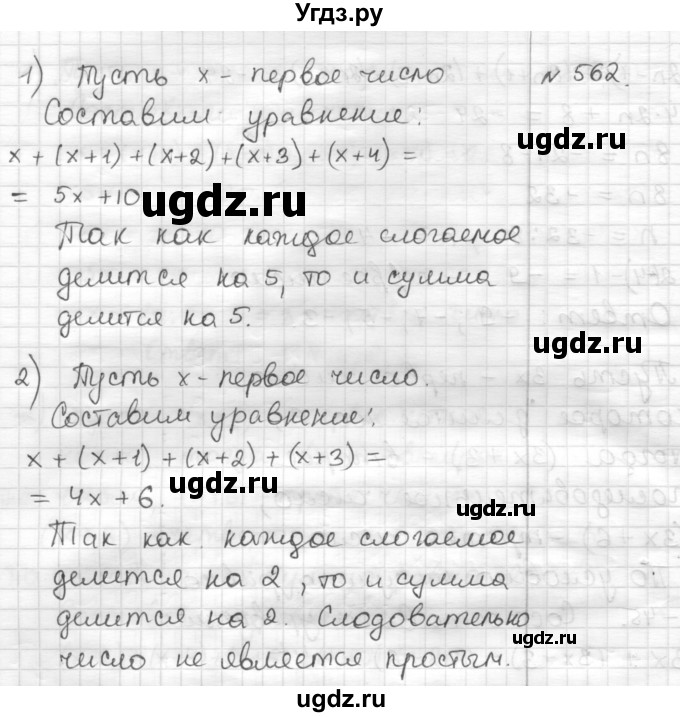 Угдз.ру
1) Пусть x - первое число № 562.
Составим уравнение:
x + (x+1) + (x+2) + (x+3) + (x+4) =
= 5x + 10
ugdz.ru
ugdz.ru
Так как каждое слогаемое
делится на 5, то и сумма
делится на 5.
ugdz.ru
2) Пусть x - первое число.
Составим уравнение:
x + (x+1) + (x+2) + (x+3) =
= 4x + 6.
ugdz.ru
ugdz.ru
Так как каждое слогаемое
делится на 2, то и сумма
делится на 2. Слодовательно
ugdz.ru
число не является простым.
ugdz.ru